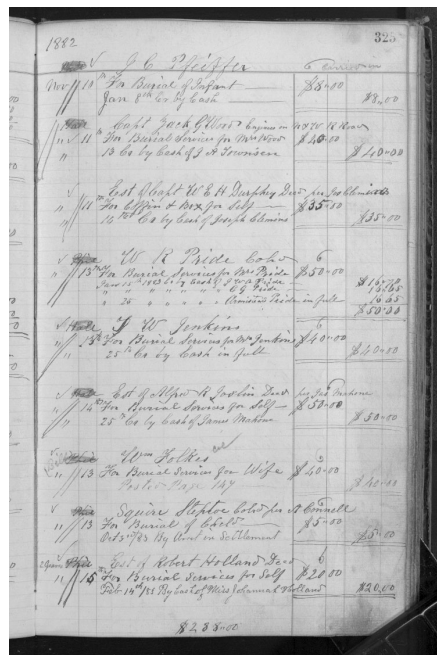 1882 323
J. C. Pfeiffer 6
Nov 10 For Burial of Infant $8.00
Jan 8th Cr by Cash $8.00
Capt Jack G Wood Engine in N & W R Road
" 11 For Burial Services for Mrs Wood $40.00
" 13 Cr by Cash of J A Townsen $40.00
Est of Capt W E H Decd per Jos Clemions
" 11 For Coffin & Box for Self $35.00
" 14th Cr by Cash of Joseph Clemions $35.00
W R Pride Cold 6
" 13th For Burial Services for Mrs Pride $50.00
Jan 15th 1883 by Cash of Pride
" " " " " Pride 16.65
" 26 " " " " Armistus Pride in full 16.65
$50.00
W Jenkins
" 13th For Burial Services for Mrs Jenkins $40.00
" 25th Cr by Cash in full $40.00
Est of Alfred R Joslin Decd per Jas Mahone
" 14th For Burial Services for Self $50.00
" 25th Cr by Cash of James Mahone $50.00
Wm Folkes
" 13 For Burial Services for Wife $40.00
Posted Page 147 $40.00
Squire Steptoe Cold per A Connell
" 13 For Burial of Child $5.00
Oct 3rd /83 By Amt in Settlement $5.00
Est of Robert Holland Decd 6
" 15th For Burial Services for Self $20.00
Feb 14th /85 By Cash of Miss Johannah Holland $20.00
$288.00